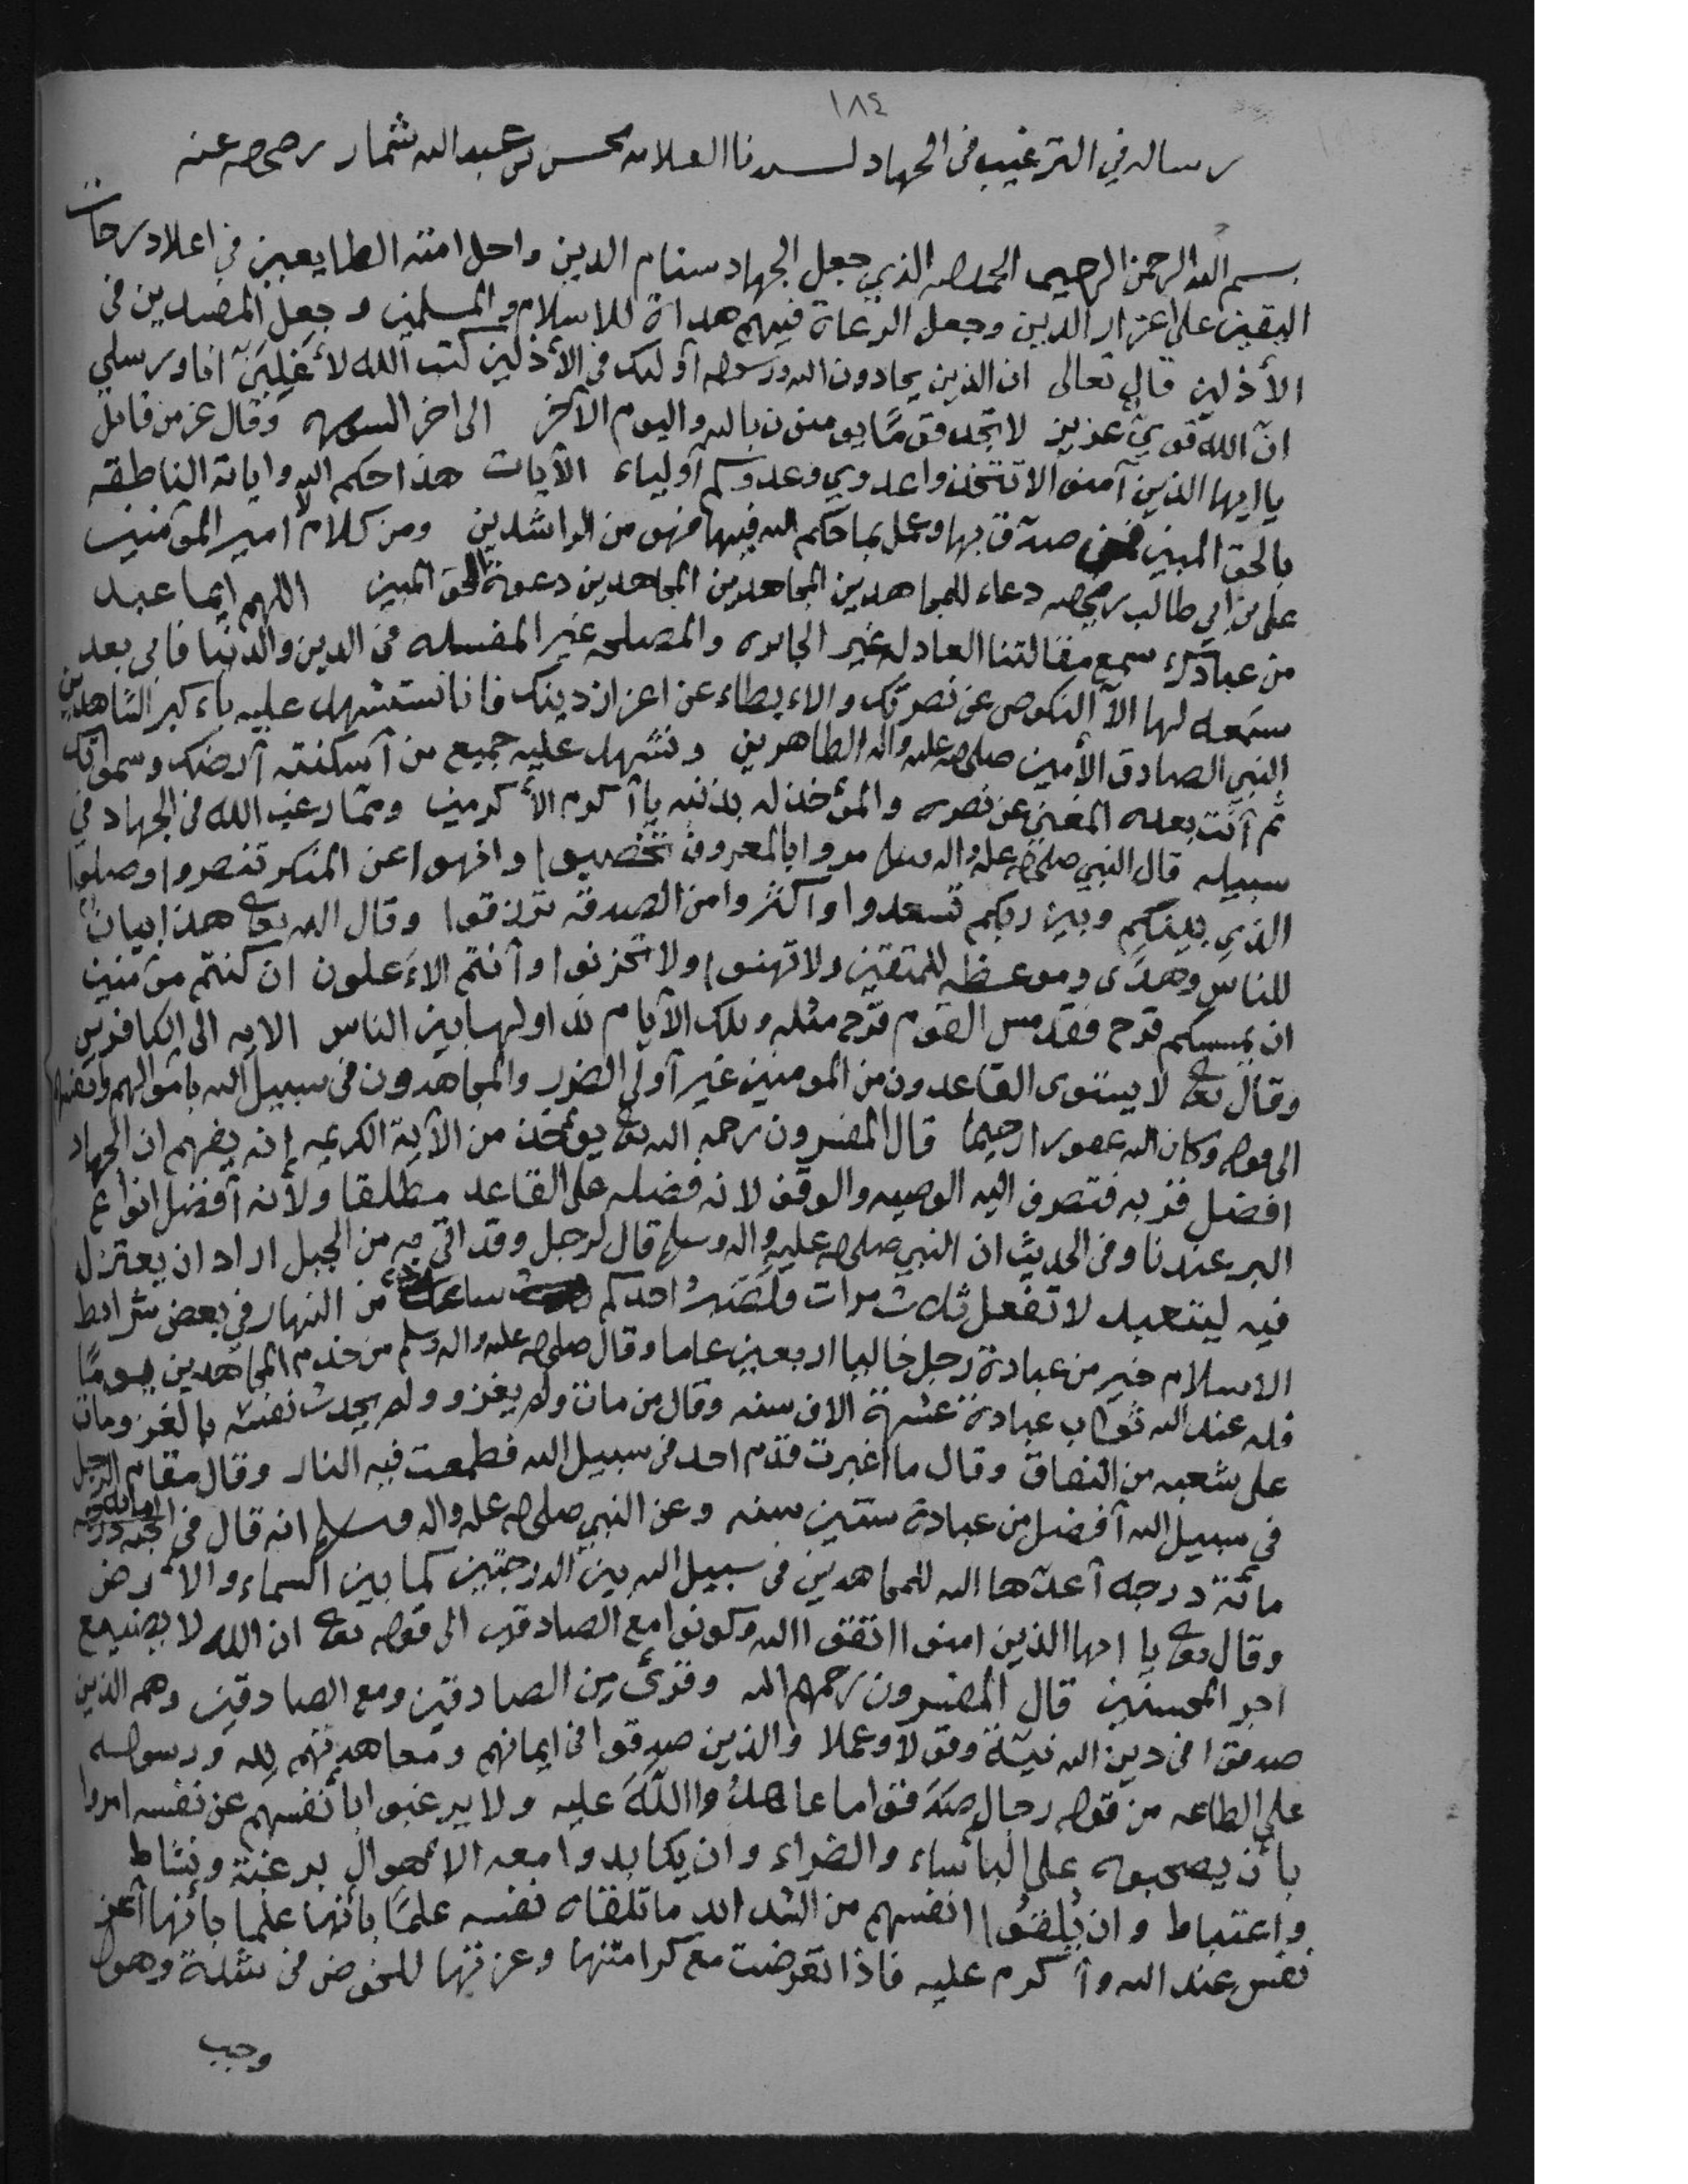 ١٨٤
رساله في الترغيب في الجهاد لسيدنا العلامه محسن بن عبد الله شمار رضي الله عنه
بسم الله الرحمن الرحيم الحمد لله الذي جعل الجهاد سنام الدين واحل امته الطايعين في اعلا درجات
اليقين على اعزاز الدين وجعل الرعاة فيهم هداة للاسلام والمسلمين وجعل المصدين في
الأذلين قال تعالى ان الذين يحادون الله ورسوله أولئك في الأذلين كتب الله لأغلبن انا ورسلي
ان الله قوي عزيز لا تجد قومًا يومنون بالله واليوم الآخر الى اخر السوره وقال عز من قائل
يا ايها الذين آمنوا لا تتخذوا عدوي وعدوكم أولياء الآيات هذا حكم الله واياته الناطقه
بالحق المبين فمن صدق بها وعمل بما حكم الله فيها فهو من الراشدين ومن كلام لامير المؤمنين
علي بن ابي طالب رضي الله دعاء للمجاهدين المجاهدين المجاهدين دعوة الحق المبين اللهم ايما عبد
من عبادك سمع مقالتنا العادله غير الجايره والمصلحه غير المفسده في الدين والدنيا فابى بعد
سمعه لها الآ النكوص عن نصرتك والاءبطاء عن اعزاز دينك فانا نستشهدك عليه باءكبر الشاهدين
النبي الصادق الأمين صلى الله عليه واله الطاهرين ونشهد عليه جميع من أسكنته أرضك وسمواتك
ثم أنت بعده المغني عن نصره والمؤخذ له بذنبه يا أكرم الأكرمين ومما رغب الله في الجهاد في
سبيله قال النبي صلى الله عليه واله وسلم مروا بالمعروف تخصبوا وانهوا عن المنكر تنصروا وصلوا
الذي بينكم وبين ربكم تسعدوا وأكثروا من الصدقه ترزقوا وقال الله تعالى هذا بيان
للناس وهدى وموعظه للمتقين ولا تهنوا ولا تحزنوا وأنتم الاءعلون ان كنتم مؤمنين
ان يمسسكم قرح فقد مس القوم قرح مثله وتلك الأيام نداولها بين الناس الايه الى الكافرين
وقال تعالى لا يستوى القاعدون من المومنين غير أولي الضرر والمجاهدون في سبيل الله باموالهم وانفسهم
الى قوله وكان الله غفورا رحيما قال المفسرون رحمهم الله تعالى يؤخذ من الآية الكريمه إنه يفهم ان الجهاد
افضل قربه فتصرف اليه الوصيه والوقف لانه فضله على القاعد مطلقا ولأنه أفضل انواع
البر عندنا وفي الحديث ان النبي صلى الله عليه واله وسلم قال لرجل وقد اتى به من الجبل اراد ان يعتزل
فيه ليتعبد لا تفعل ثلاث مرات فلصبر احدكم ساعة من النهار في بعض شرائط
الاسلام خير من عبادة رجل خاليا اربعين عاما وقال صلى الله عليه واله وسلم من خدم المجاهدين يومًا
فله عند الله ثواب عبادة عشرة الاف سنه وقال من مات ولم يغز ولم يحدث نفسه بالغزو مات
على شعبه من النفاق وقال ما اغبرت قدم احد في سبيل الله فطمعت فيه النار وقال مقام الرجل
في سبيل الله أفضل من عبادة ستين سنه وعن النبي صلى الله عليه واله وسلم انه قال في الجنه
مائة درجه أعدها الله للمجاهدين في سبيل الله بين الدرجتين كما بين السماء والأرض
وقال تعالى يا ايها الذين امنوا اتقوا الله وكونوا مع الصادقين الى قوله تعالى ان الله لا يضيع
اجر المحسنين قال المفسرون رحمهم الله وقرئ من الصادقين ومع الصادقين وهم الذين
صدقوا في دين الله نيتة وقولا وعملا والذين صدقوا في ايمانهم ومعاهدتهم لله ورسوله
على الطاعه من قوله رجال صدقوا ما عاهدوا اللّهَ عليه ولا يرغبوا بأنفسهم عن نفسه امروا
بأن يصحبوه على البأساء والضراء وان يكابدوا معه الاهوال برغبة ونشاط
واغتباط وان يلقوا انفسهم من الشدائد ما تلقاه نفسه علمًا بأنها علما بأنها أعز
نفس عند الله وأكرم عليه فاذا تعرضت مع كرامتها وعزتها للخوض في شدة وهول
وجب